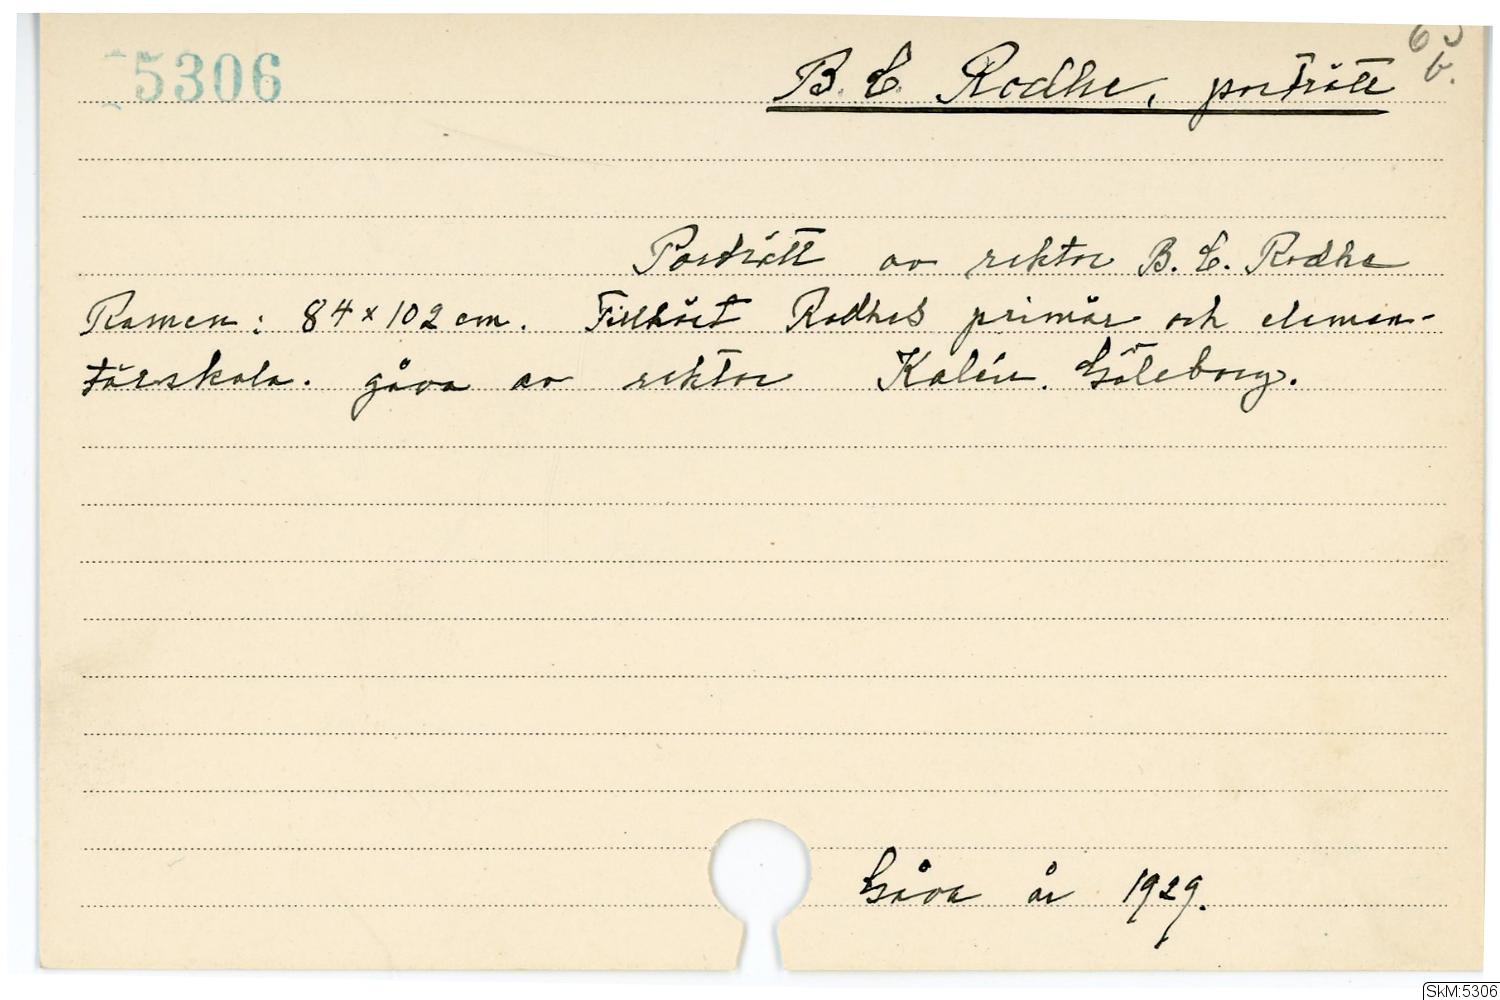 5306
B. E. Rodhe, porträtt
b.
Porträtt av rektor B. E. Rodhe
Ramen: 84 x 102 cm. Tillhört Rodhes primär och elemen-
tärskola. gåva av rektor Kalén. Göteborg.
Gåva år 1929.
SkM:5306